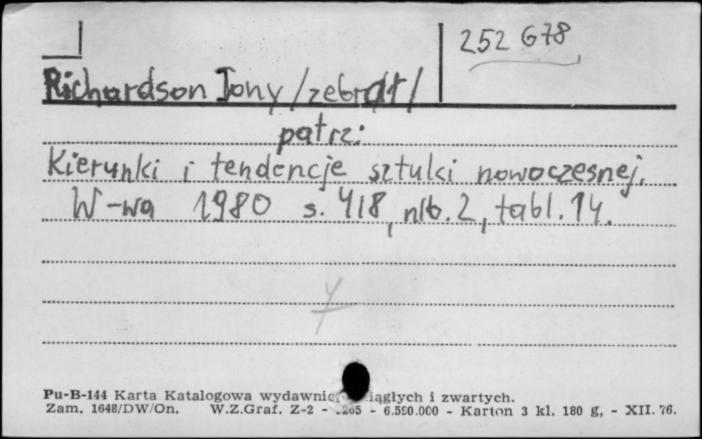 252 678
Richardson Tony /zebrał/
patrz:
Kierunki i tendencje sztuki nowoczesnej.
W-wa 1980 s. 418, nlb. 2, tabl. 14.
Pu-B-144 Karta Katalogowa ciągłych i zwartych.
Zam. 1648/DW/On. W.Z.Graf. Z-2 - 6.580.000 - Karton 3 kl. 180 g, - XII. 76.